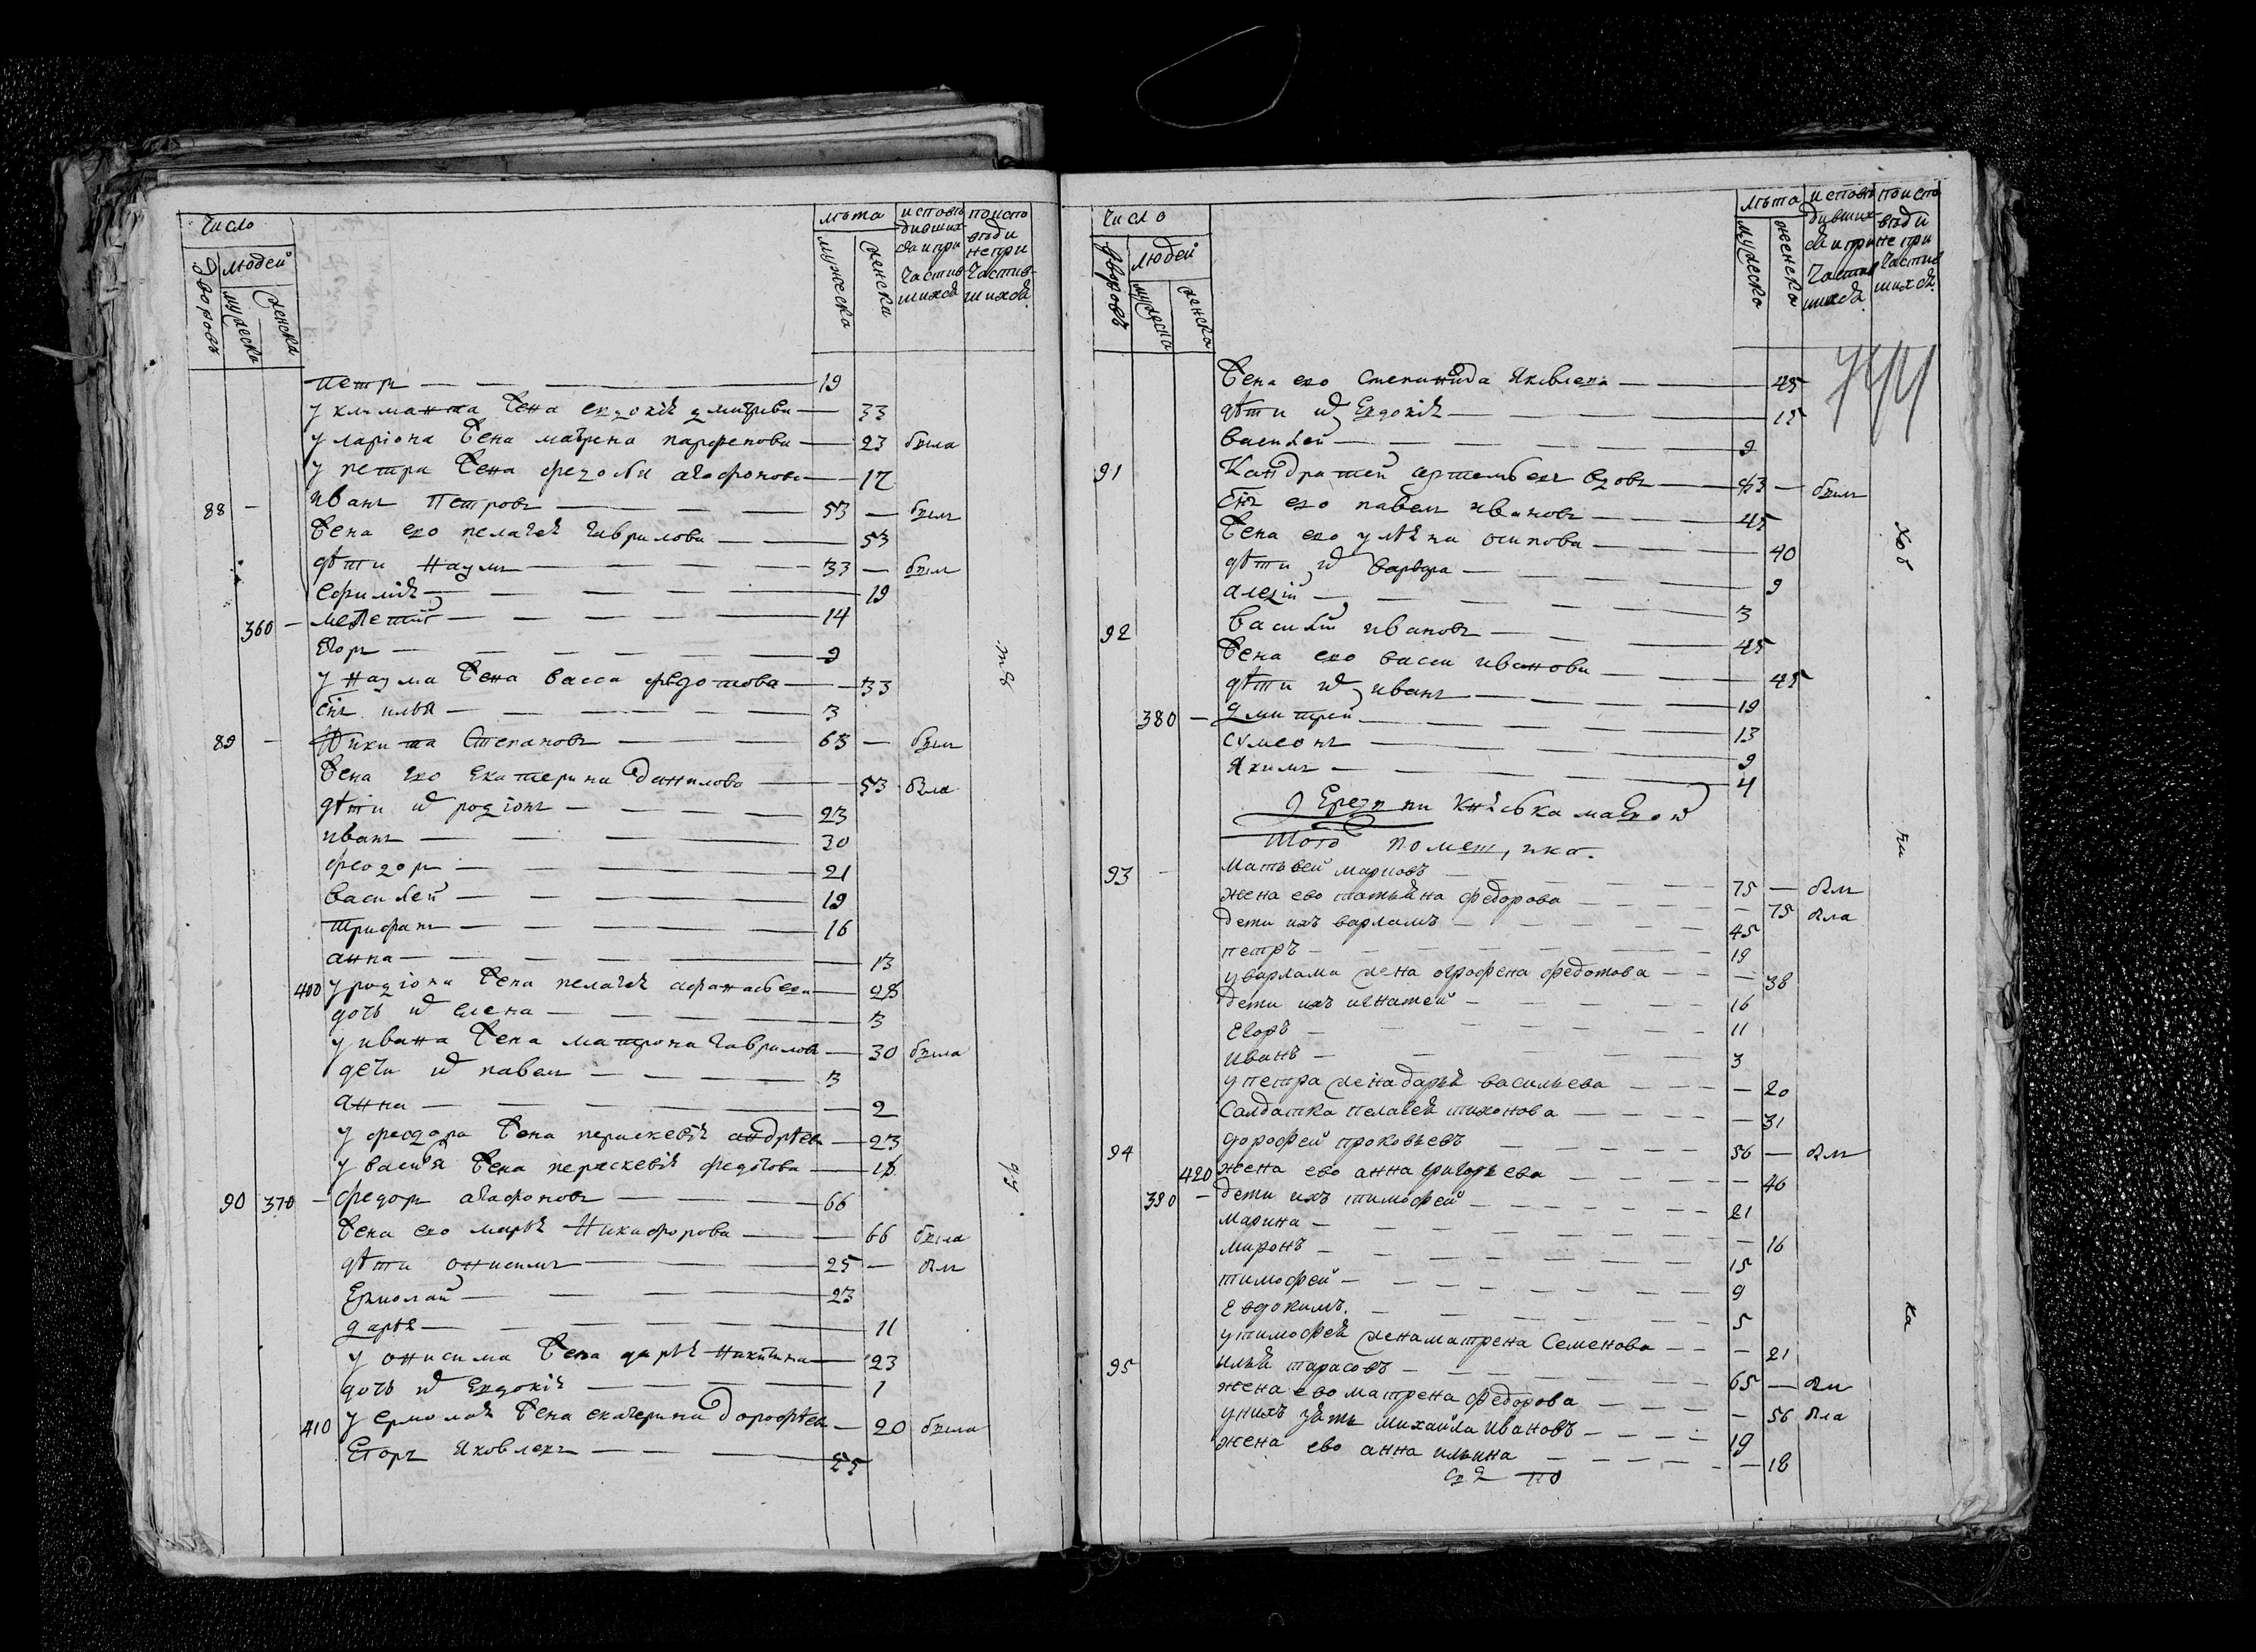 Число
Дворовъ
Людей
мужеска
женска
лѣта
мужеска
женска
исповѣдившихся и причастившихся
по исповѣди не причастившихся
петръ 19
у климанта жена евдокія дмитриева 33
у ларіона жена матрена парфенова 23 была
у петра жена федосья агафонова 17
88 иванъ петровъ 53 былъ
жена ево пелагея гаврилова 53
дѣти наумъ 33 былъ
ефимія 19
360 мелетій 14
Егоръ 9
у наума жена васса федотова 33
снъ илья 3
89 Никита Степановъ 63 былъ
жена ево екатерина данилова 53 была
дѣти их родіонъ 23
иванъ 30
феодоръ 21
василей 19
трифанъ 16
анна 13
400 у родіона жена пелагея афанасьева 28
дочь их елена 3
у ивана жена матрона гаврилова 30 была
дети их павелъ 3
анна 2
у феодора жена параскевія андрѣева 23
у васи'я жена параскевія федотова 18
90 370 федоръ агафоновъ 66
жена ево марья Никифорова 66 была
дѣти онисимъ 25 былъ
Ермолай 23
дарья 11
у онисима жена дарья никитина 23
дочь их евдокія 1
410 у ермолая жена екатерина дорофѣева 20 была
Егоръ Яковлевъ 55
Число
Дворовъ
людей
мужеска
женска
лѣта
мужеска
женска
исповѣдившихся и причастившихся
по исповѣди не причастившихся
744
жена ево степанида Яковлева 45
дѣти их Евдокія 15
василей 9
91 Кандратей артемьевъ вдовъ 83 былъ
снъ ево павелъ ивановъ 45
жена ево уляна осипова 40
дѣти их варвара 9
алеѯій 3
92 василій ивановъ 45
жена ево васса иванова 45
дѣти их иванъ 19
380 дмитрей 13
сумеонъ 9
якимъ 4
того помещика
93 матвей марковъ 75 былъ
жена ево татьяна федорова 75 была
дети ихъ варламъ 45
петръ 19
у варлама жена огрофена федотова 38
дети ихъ игнатей 16
Егоръ 11
иванъ 3
у петра жена дарья васильева 20
салдатка пелагея тихонова 31
94 дорофей прокофьевъ 56 былъ
420 жена ево анна григорьева 46
390 дети ихъ тимофей 21
марина 16
миронъ 15
тимофей 9
евдокимъ 5
у тимофея жена матрена Семенова 21
95 илья тарасовъ 65 былъ
жена ево матрена федорова 56 была
у нихъ зять михайла ивановъ 19
жена ево анна ильина 18